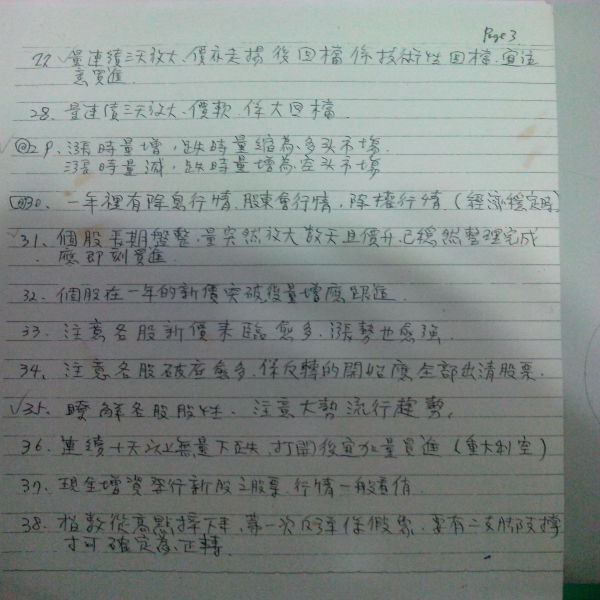 Page 3.
27、量連續三天放大、價亦走揚後回檔係技術性回檔、宜注
意買進.
28、量連續三天放大、價軟、係大回檔.
29、漲時量增，跌時量縮為多头市場.
漲時量減，跌時量增為空头市場
30、一年裡有除息行情、股東會行情，除權行情，(經濟穩定時)
31、個股長期盤整，量突然放大數天且價升，已穩然整理完成
應即刻買進.
32、個股在一年的新價突破後量增應跟進.
33、注意各股新價來臨愈多、漲勢也愈強.
34、注意各股破底愈多、係反轉的開始應全部出清股票.
35、瞭解各股股性、注意大勢流行趨勢。
36、連續十天以上無量下跌，打開後宜加量買進 (重大利空)
37、現金增資發行新股之股票、行情一般看俏.
38、指數從高點摔下來，第一次反彈係假象，要有二支腳支撐
才可確定為正轉.